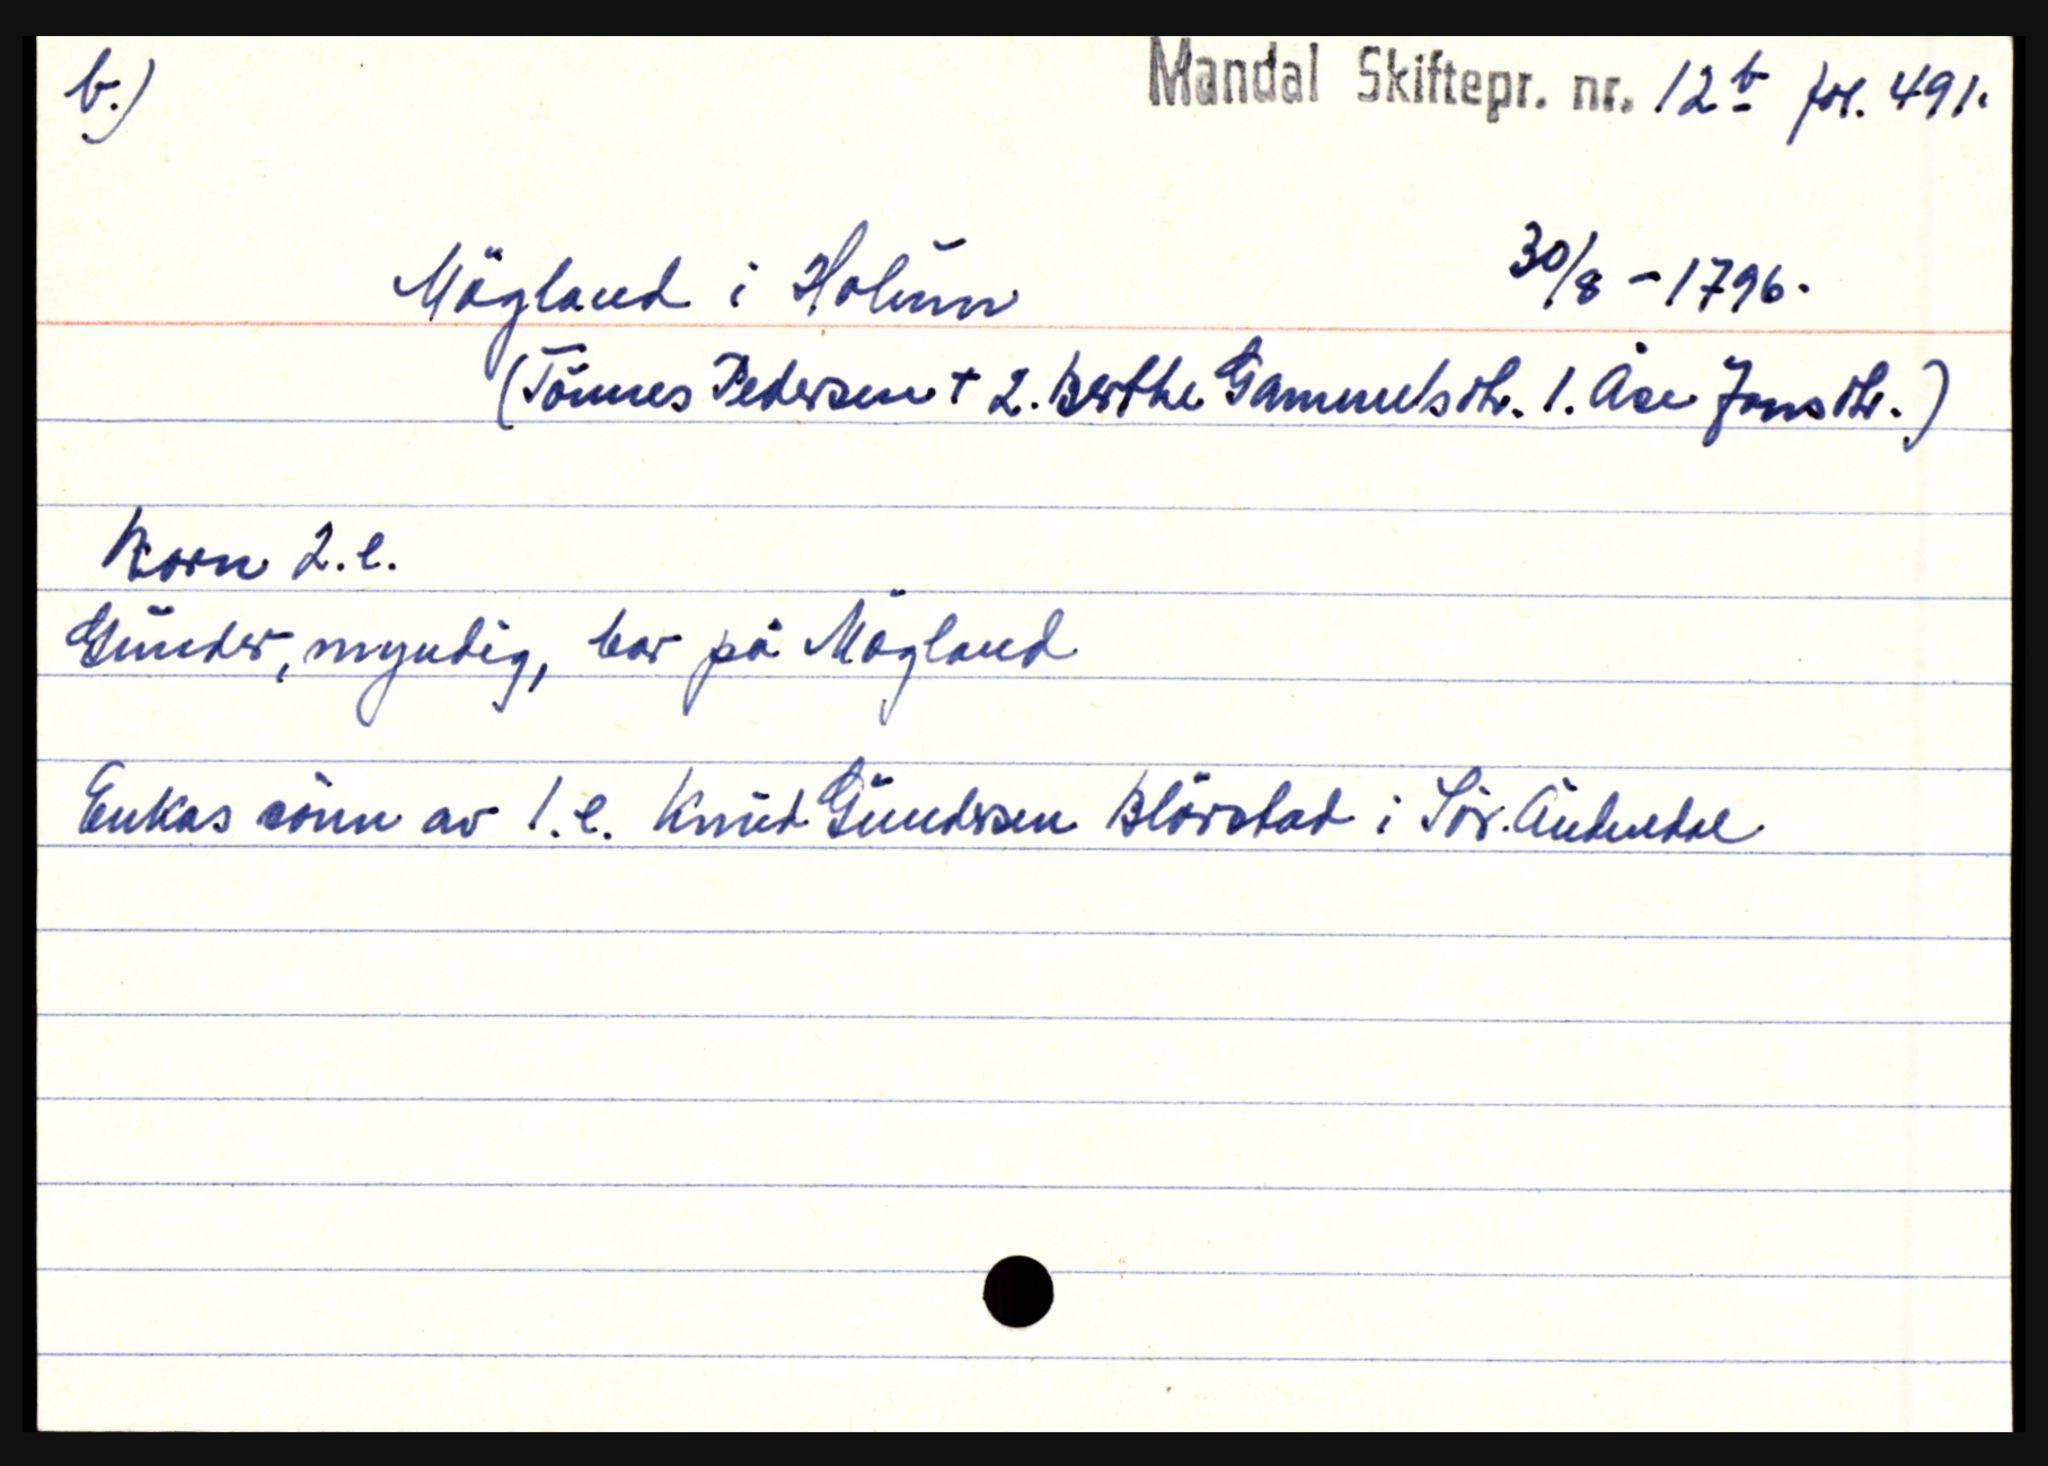 b.) Mandal Skiftepr. nr. 12b fol. 491.
Mögland i Holum 30/8 - 1796.
(Tönnes Pedersen + 2. Berthe Gammelsdtr. 1. Åse Jonsdtr.)
Barn 2. e.
Gunder, myndig, bor på Mögland
Enkas sönn av 1. e. Knud Gundersen Blörstad i Sör. Audnedal